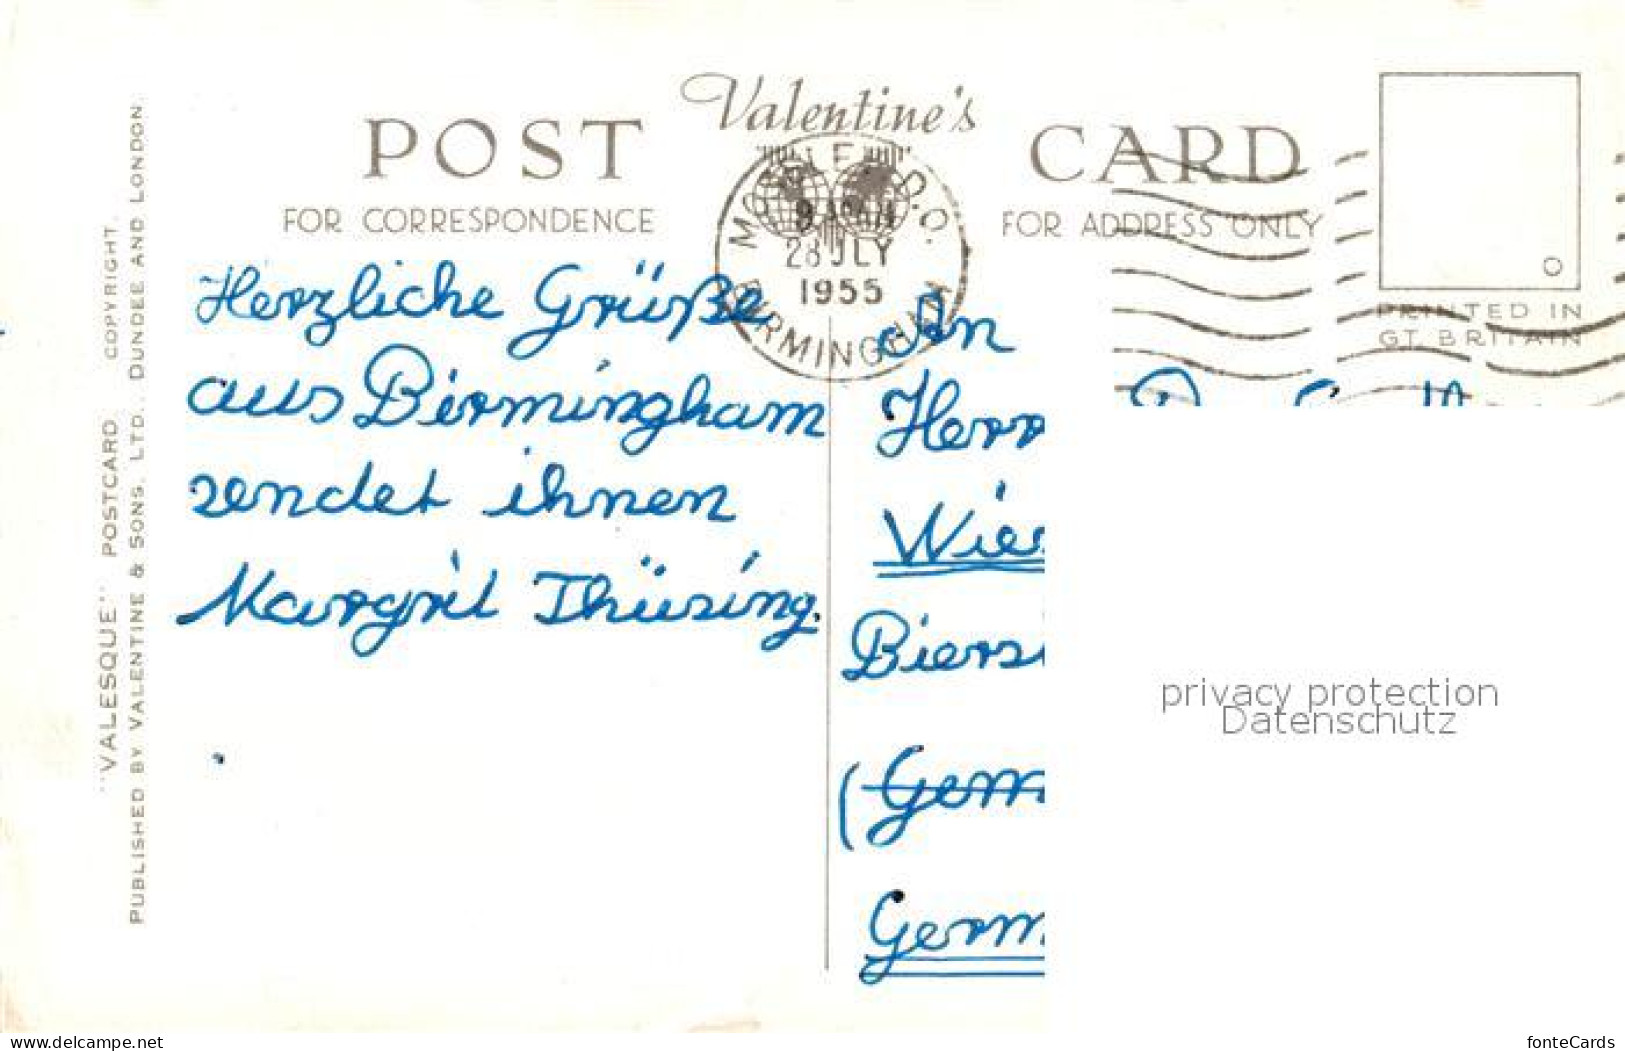 Valentine's
POST CARD
FOR CORRESPONDENCE
FOR ADDRESS ONLY
PRINTED IN
GT. BRITAIN
28 JLY
1955
BIRMINGHAM
Herzliche Grüße
aus Birmingham
sendet ihnen
Margrit Thüsing.
An
Herr
Wies
Biers
(Germ
Germ
"VALESQUE" POSTCARD COPYRIGHT.
PUBLISHED BY VALENTINE & SONS, LTD., DUNDEE AND LONDON.
privacy protection
Datenschutz
www.delcampe.net
fonteCards